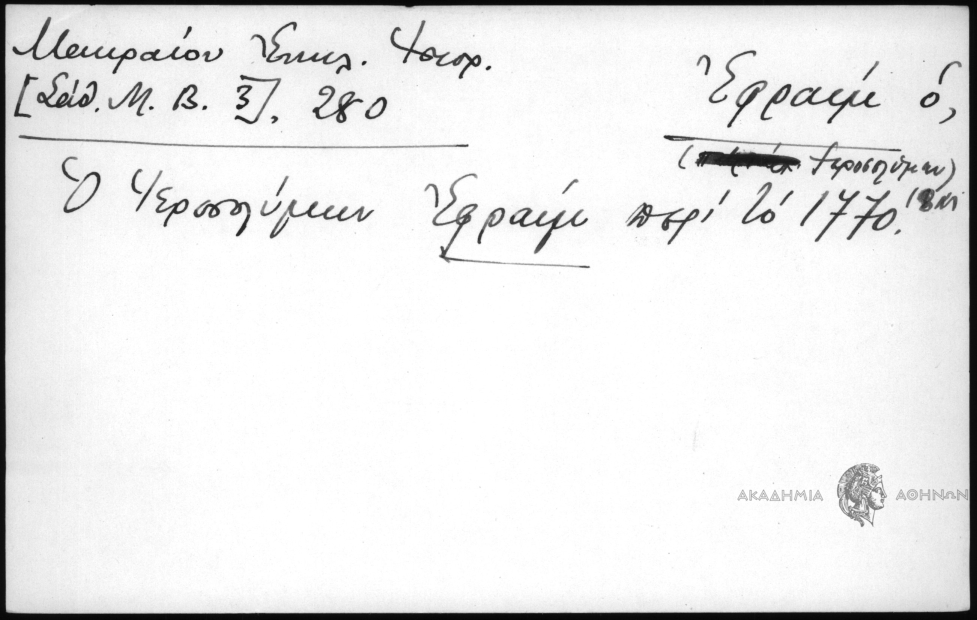 Μακραίου Ἐκκλ. Ἱστορ.
[Σάθ. Μ. Β. 3], 280
Ἐφραίμ ὁ,
( Ἱεροσολύμων)
Ὁ Ἱεροσολύμων Ἐφραίμ περί τό 1770.
ΑΚΑΔΗΜΙΑ ΑΘΗΝΩΝ